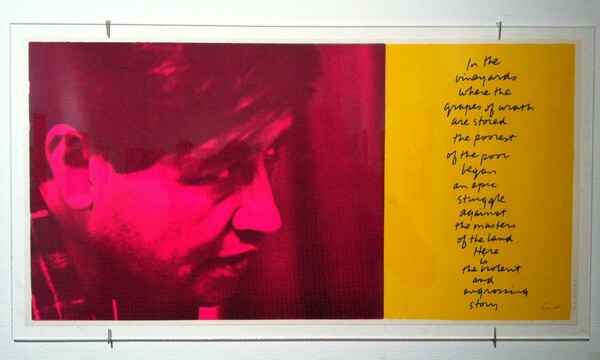 In the
vineyards
where the
grapes of wrath
are stored
the poorest
of the poor
began
an epic
struggle
against
the masters
of the land.
Here
is
the violent
and
engrossing
story